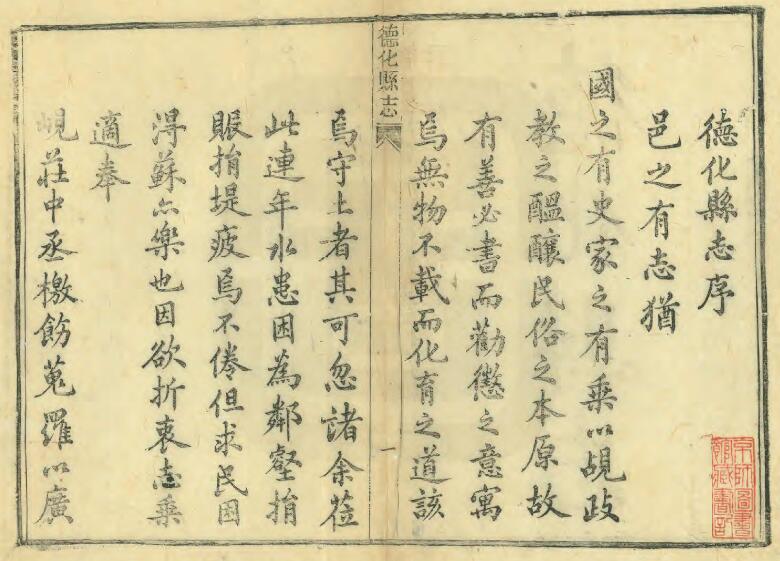 德化縣志序
邑之有志猶
國之有史家之有乘以覘政
教之醞釀民俗之本原故
有善必書而勸懲之意寓
焉無物不載而化育之道該
德化縣志
一
焉守土者其可忽諸余莅
此連年水患困為鄰壑捐
賑捐堤疲焉不倦但求民困
得蘇亦樂也因欲折衷志乘
適奉
峴莊中丞檄飭蒐羅以廣
京師圖書
館藏書印